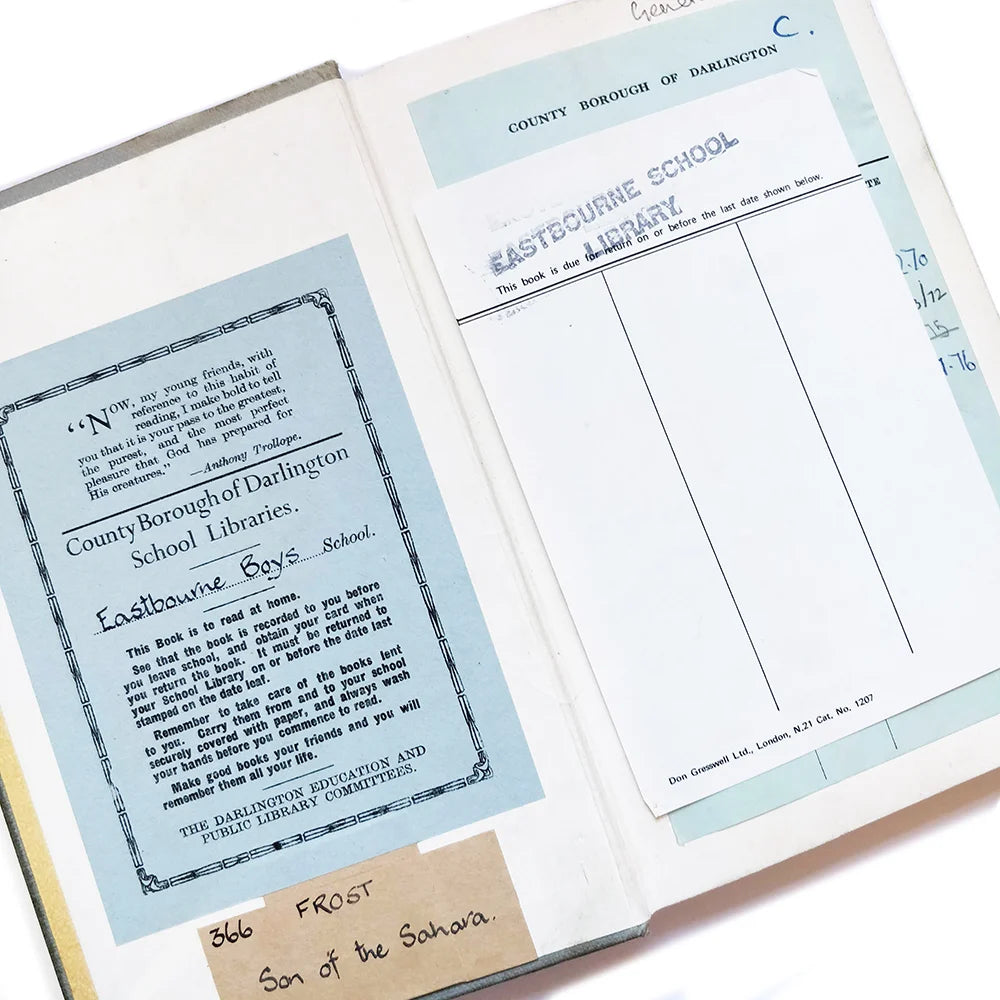 “NOW, my young friends, with
reference to this habit of
reading, I make bold to tell
you that it is your pass to the greatest,
the purest, and the most perfect
pleasure that God has prepared for
His creatures.”
—Anthony Trollope.
County Borough of Darlington
School Libraries.
Eastbourne Boys School.
This Book is to read at home.
See that the book is recorded to you before
you leave school, and obtain your card when
you return the book. It must be returned to
your School Library on or before the date last
stamped on the date leaf.
Remember to take care of the books lent
to you. Carry them from and to your school
securely covered with paper, and always wash
your hands before you commence to read.
Make good books your friends and you will
remember them all your life.
THE DARLINGTON EDUCATION AND
PUBLIC LIBRARY COMMITTEES.
366 FROST
Son of the Sahara.
C.
COUNTY BOROUGH OF DARLINGTON
EASTBOURNE SCHOOL
LIBRARY
This book is due for return on or before the last date shown below.
Don Gresswell Ltd., London, N.21 Cat. No. 1207